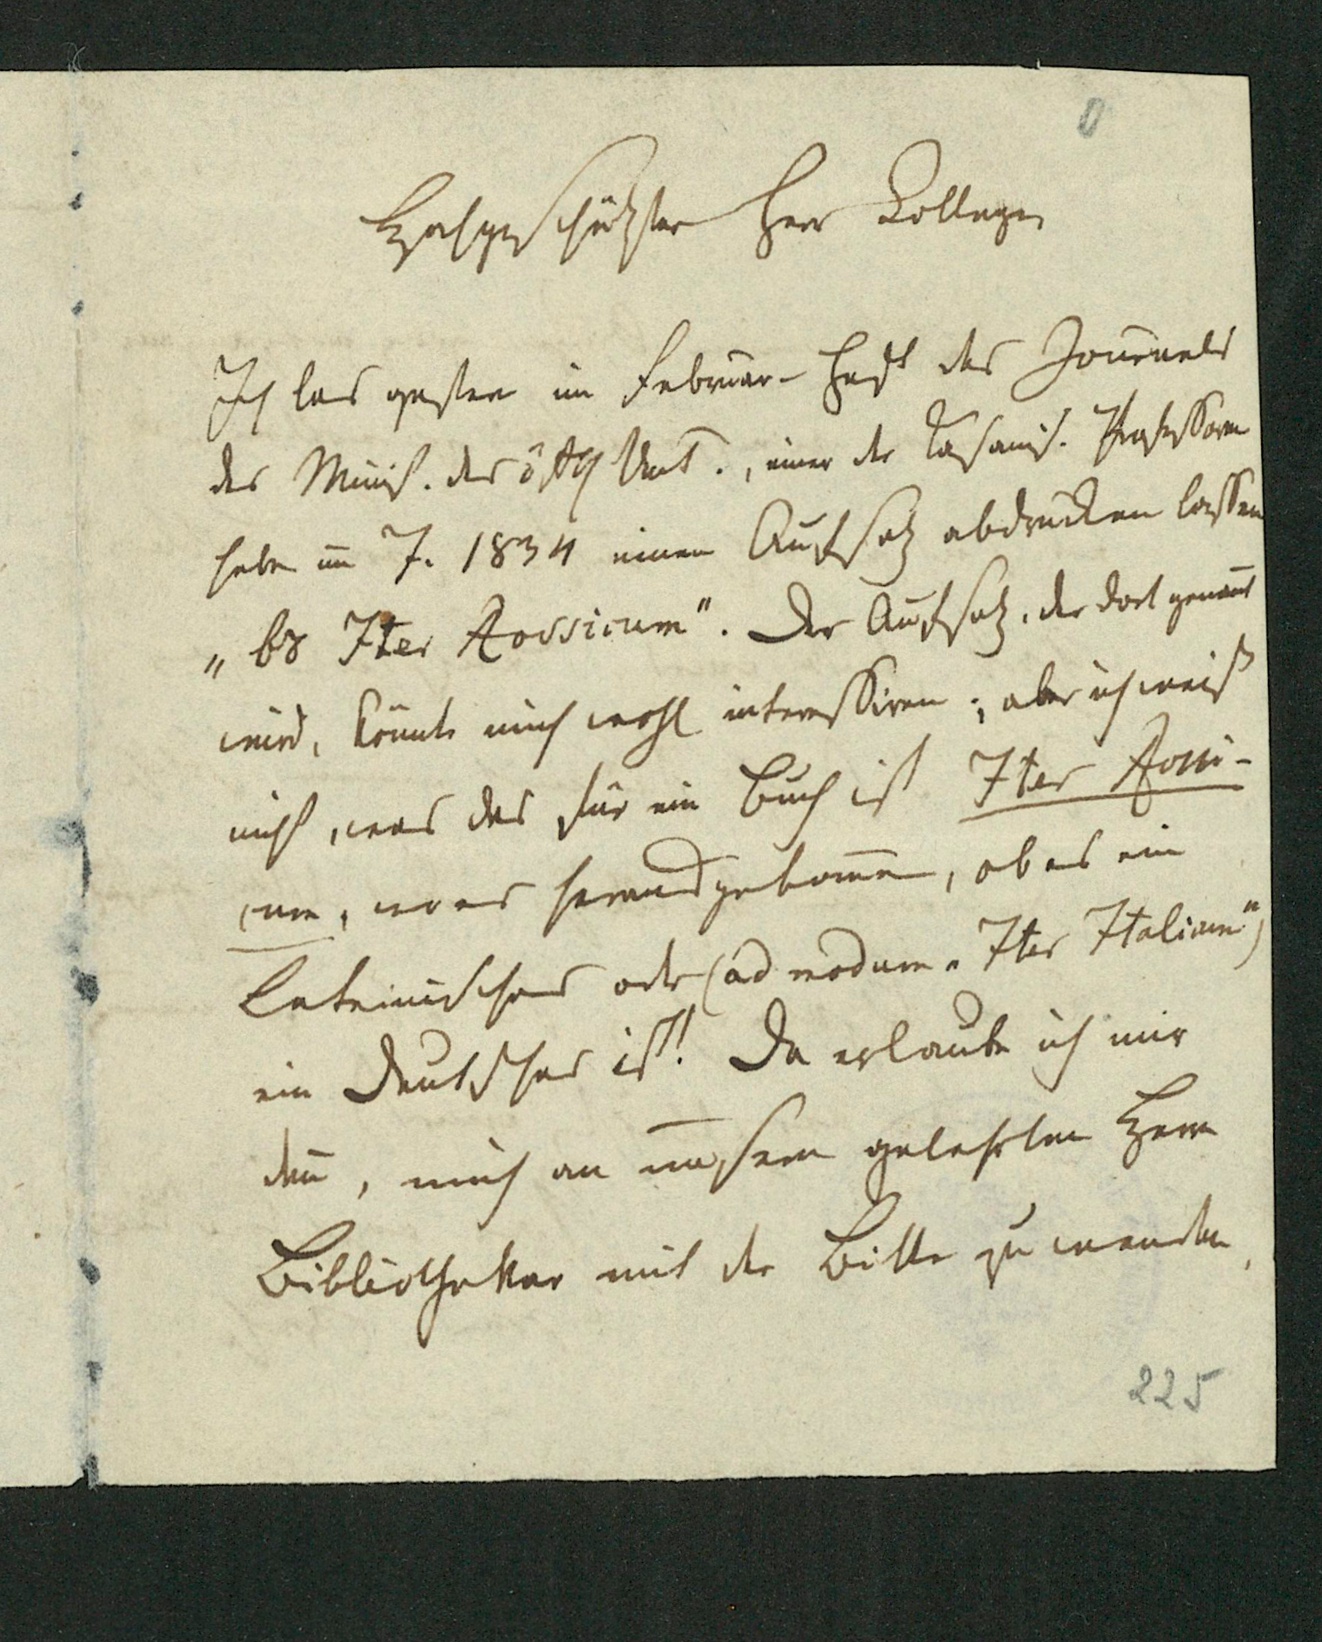 0
Hochgeschätzter Herr Kollege
Ich las gestern im Februar-Heft des Journals
des Minist. des öfftl Unt., einer der Kasanisch. Professoren
habe im J. 1834 einen Aufsatz abdrucken lassen
„въ Iter Rossicum". Der Aufsatz, der dort genannt
wird, könnte mich wohl interessiren; aber ich weiß
nicht, was das für ein Buch ist Iter Rossi-
cum, wo es herausgekommen, ob es ein
Lateinisches oder (ad modum „Iter Italicum")
ein Deutsches ist! Da erlaube ich mir
denn, mich an unseren gelehrten Herrn
Bibliothekar mit der Bitte zu wenden,
225